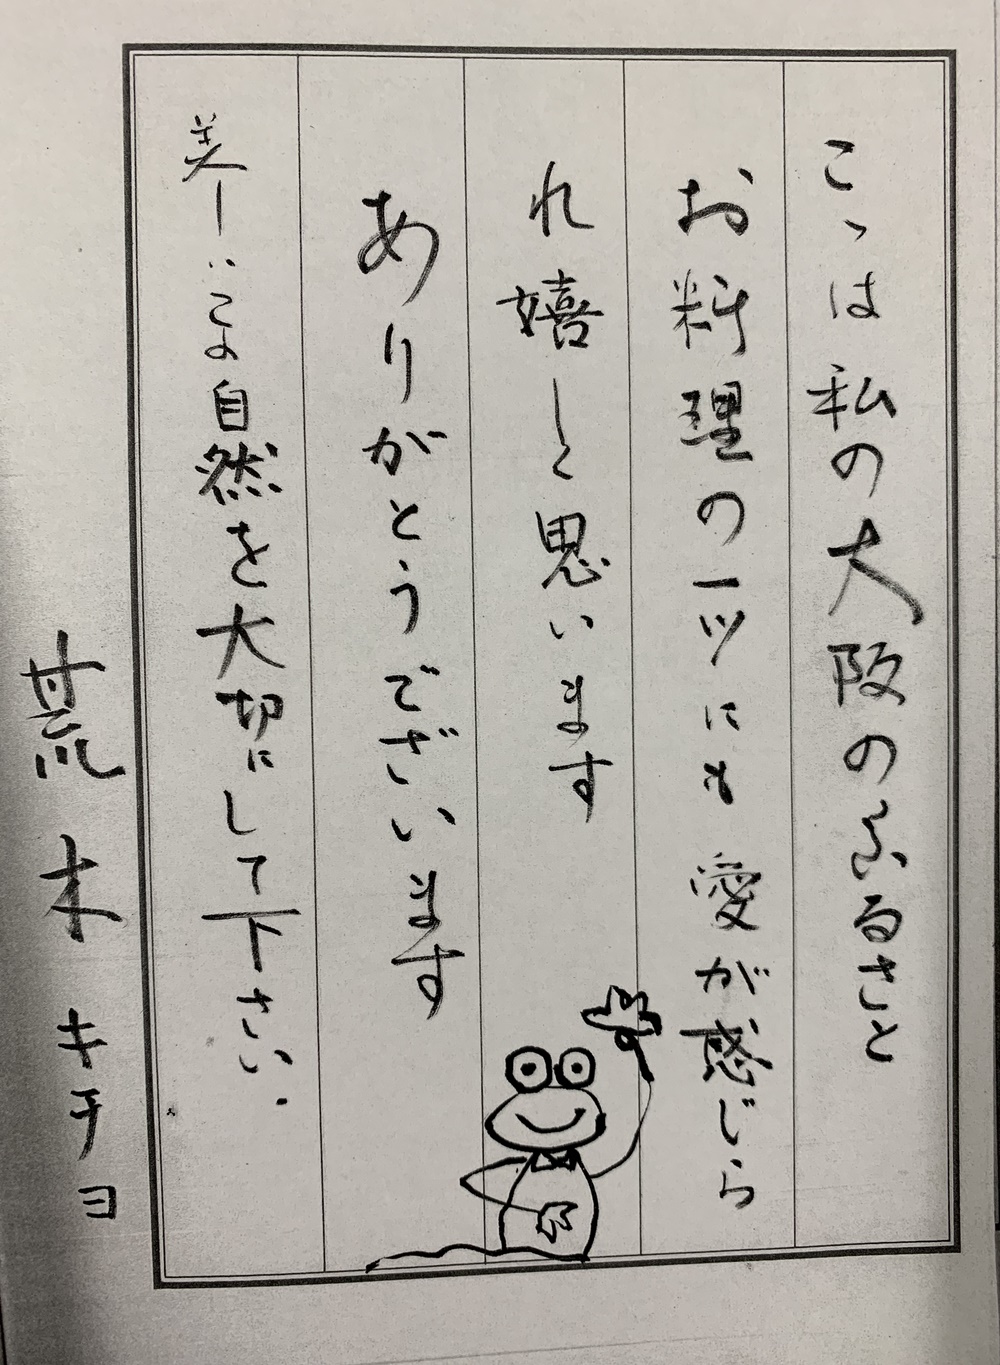 こゝは私の大阪のふるさと
お料理の一ツにも愛が感じら
れ嬉しと思います
ありがとうございます
美しいこの自然を大切にして下さい.
荒木キチヨ